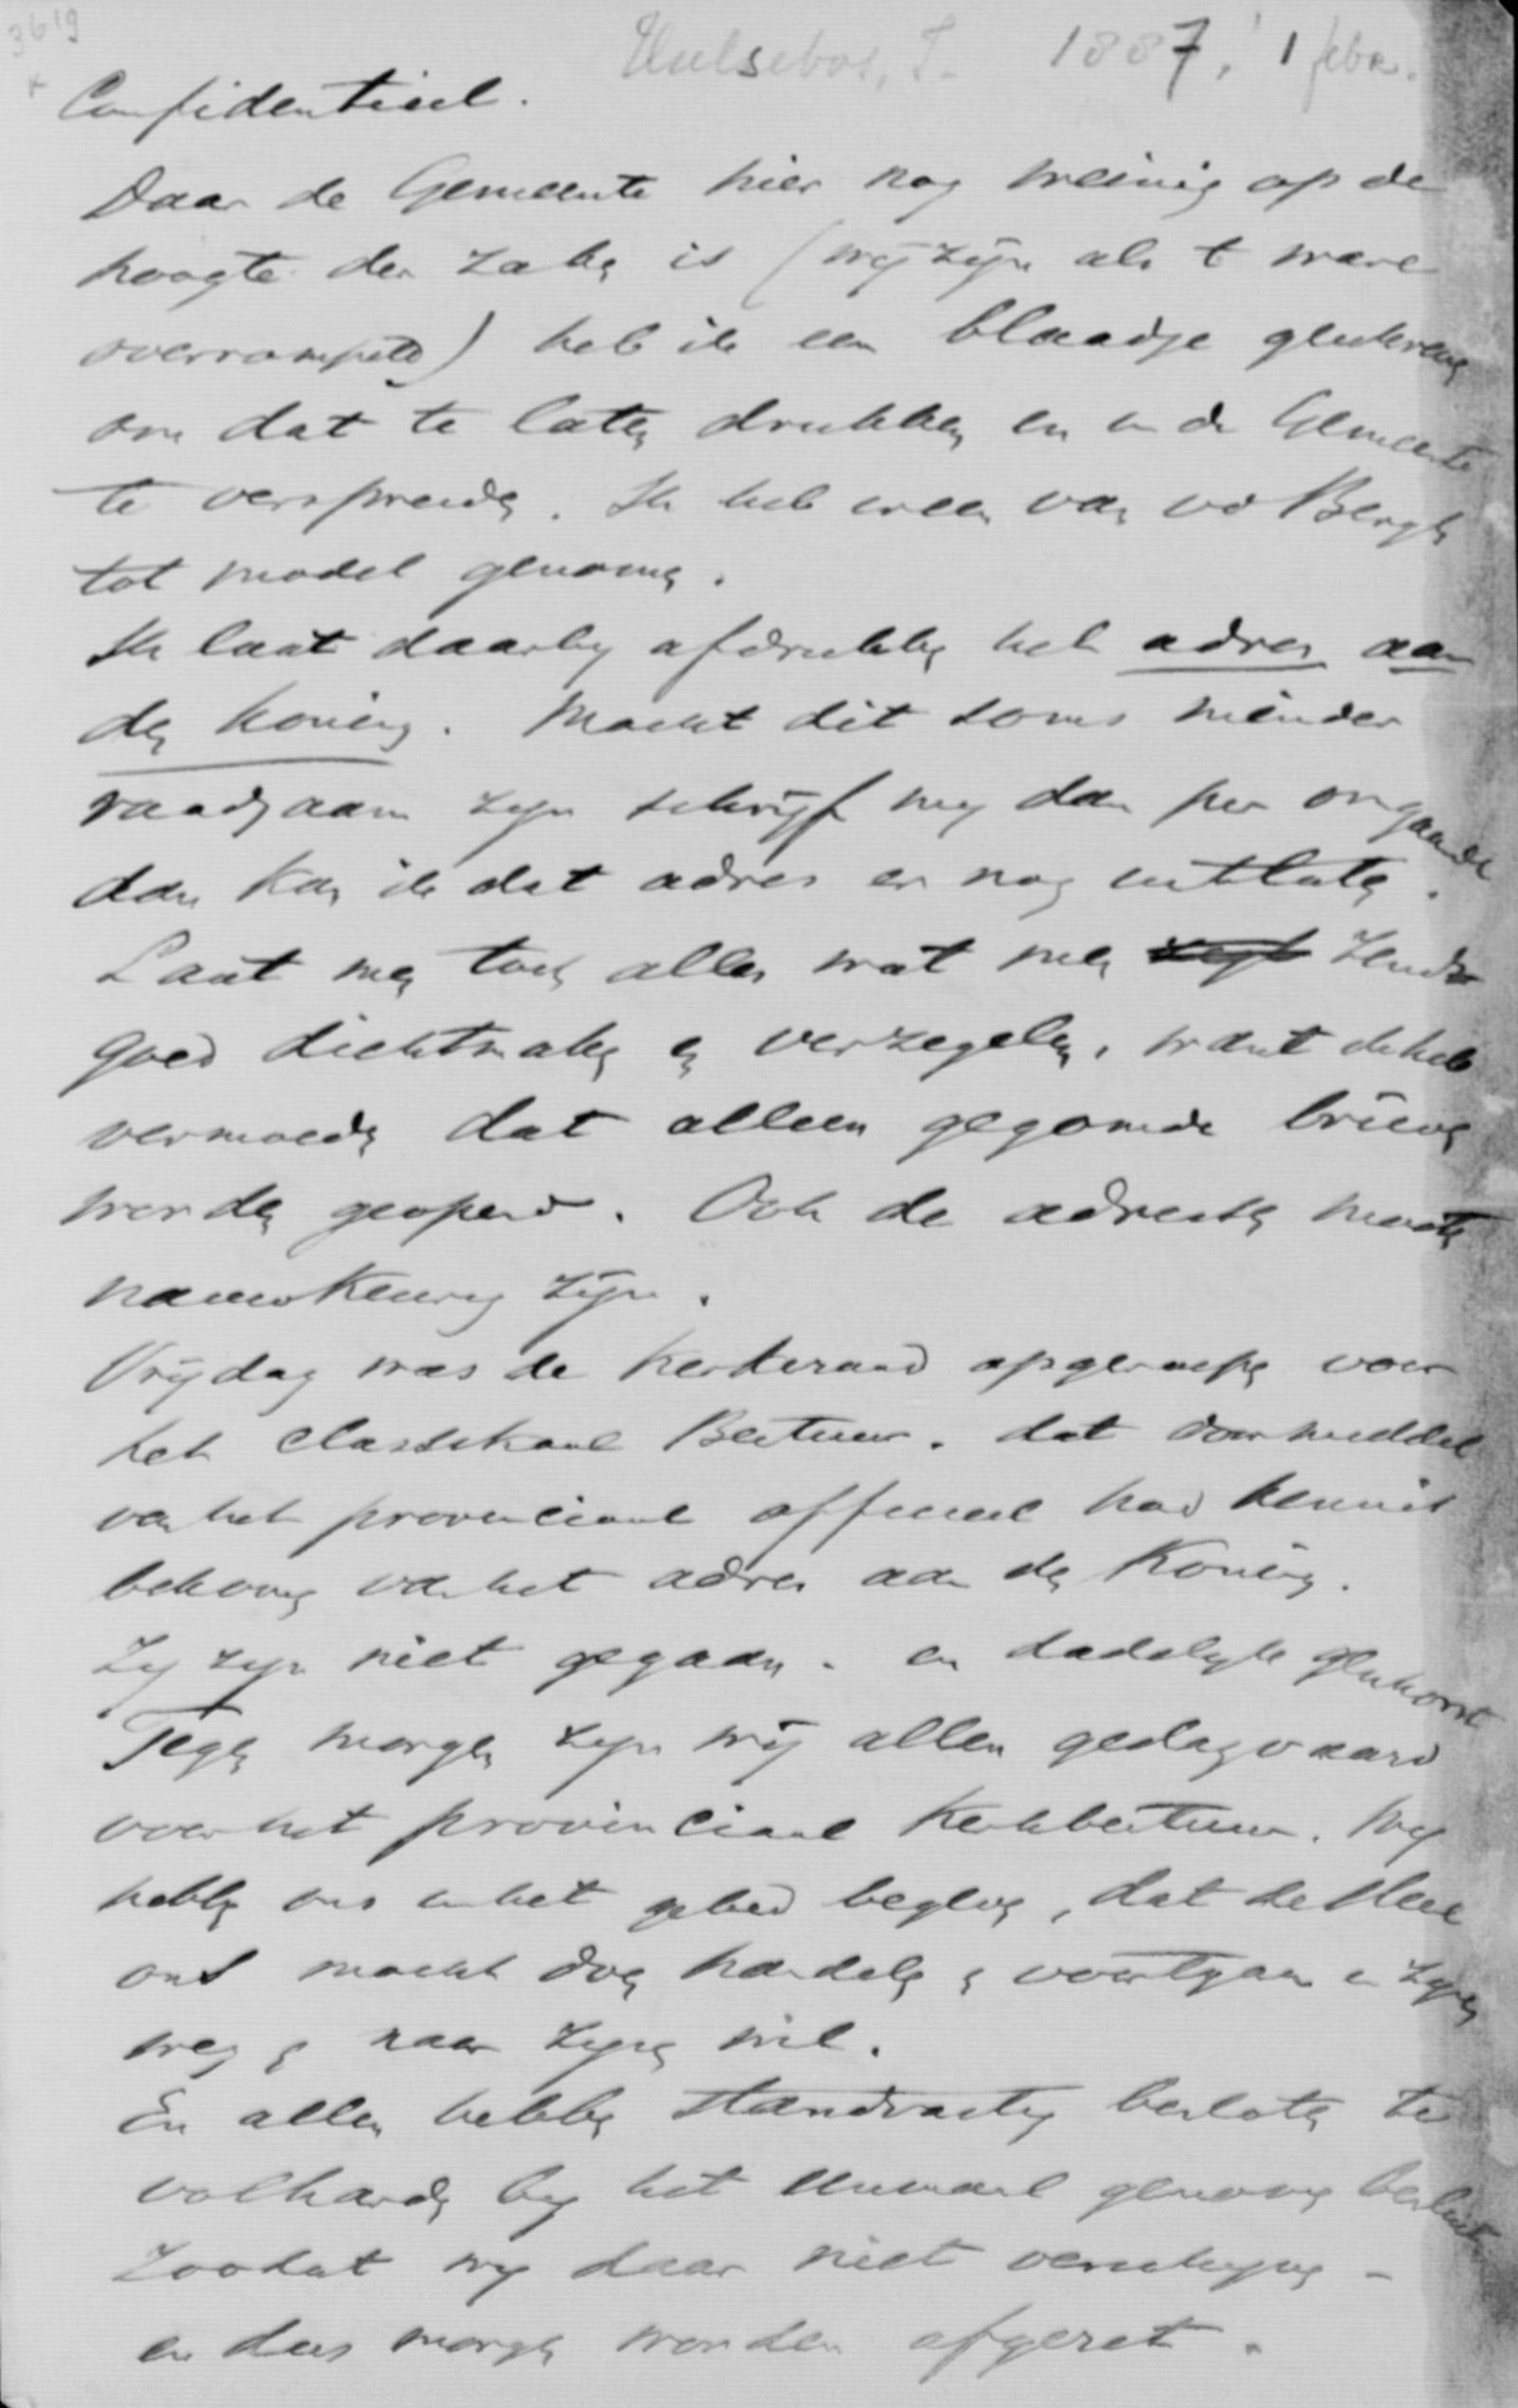 3619
Hulsebos, T. 1887, 1 febr.
Confidentieel.
Daar de Gemeente hier nog weinig op de
hoogte der zaken is (wij zijn als t ware
overrompeld) heb ik een blaadje geschreven
om dat te laten drukken en in de Gemeente
te verspreiden. Ik heb er een van vd Bergh
tot model genomen.
Ik laat daarbij afdrukken het adres aan
den koning. Mocht dit soms minder
raadzaam zijn schrijf mij dan per omgaande
dan kan ik dat adres er nog uitlaten.
Laat mij toch alles wat men zendt
goed dichtmaken en verzegelen, want ik heb
vermoeden dat alleen gegomde brieven
worden geopend. Ook de adressen moeten
nauwkeurig zijn.
Vrijdag was de kerkeraad opgeroepen voor
het classikaal Bestuur. dat door middel
van het provinciaal officieel had kennis
bekomen van het adres aan den Koning.
Zij zijn niet gegaan. en dadelijk geschorst
Tegen morgen zijn wij allen gedagvaard
voor het provinciaal Kerkbestuur. Wij
hebben ons in het gebed begeven, dat de Heer
ons mocht doen handelen en voortgaan in zijnen
weg en naar zijnen wil.
En allen hebben standvastig besloten te
volharden bij het eenmaal genomen besluit
zoodat wij daar niet verschijnen -
en dus morgen worden afgezet.